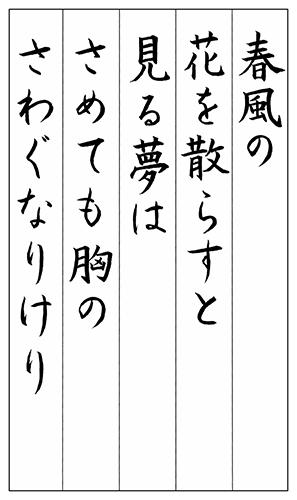 春風の
花を散らすと
見る夢は
さめても胸の
さわぐなりけり